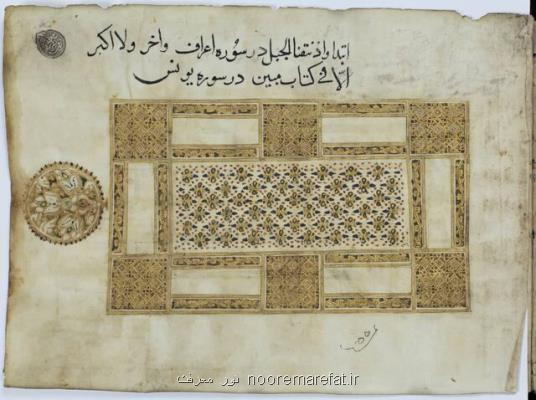 ابتدا واذ نتقنا الجبل در سوره اعراف و اخر ولا اكبر
الا في كتاب مبين در سوره يونس
نور معرفت nooremarefat.ir